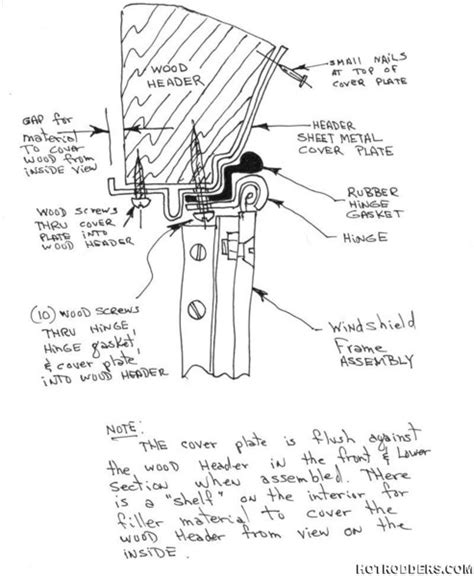 WOOD
HEADER
SMALL NAILS
AT TOP OF
COVER PLATE
GAP for
material
TO COVER
WOOD from
INSIDE VIEW
HEADER
SHEET METAL
COVER PLATE
RUBBER
HINGE
GASKET
HINGE
WOOD SCREWS
THRU COVER
PLATE INTO
WOOD HEADER
(10) WOOD SCREWS
THRU HINGE,
HINGE gasket,
& cover plate
INTO WOOD HEADER
WINDSHIELD
Frame
ASSEMBLY
NOTE:
THE cover plate is flush against
the WOOD Header IN the front & Lower
Section when assembled. THERE
is A "shelf" ON the interior for
filler material to cover the
WOOD Header from view ON the
INSIDE.
HOTRODDERS.COM